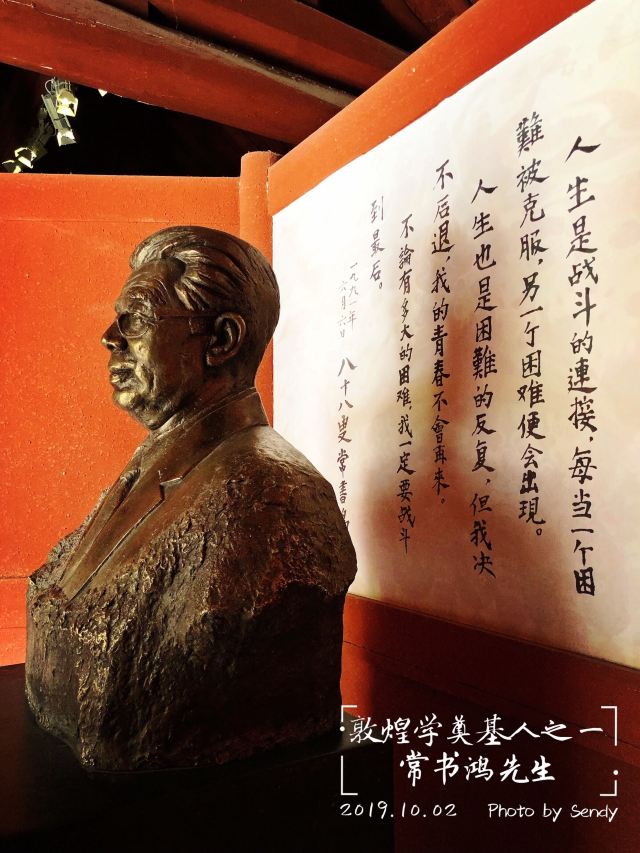 人生是战斗的連接，每当一个困
難被克服，另一个困难便会出現。
人生也是困難的反复，但我决
不后退，我的青春不會再来。
不論有多大的困难，我一定要战斗
到最后。
一九九一年
六月六日
八十八叟常書鸿
敦煌学奠基人之一
常书鸿先生
2019.10.02 Photo by Sendy